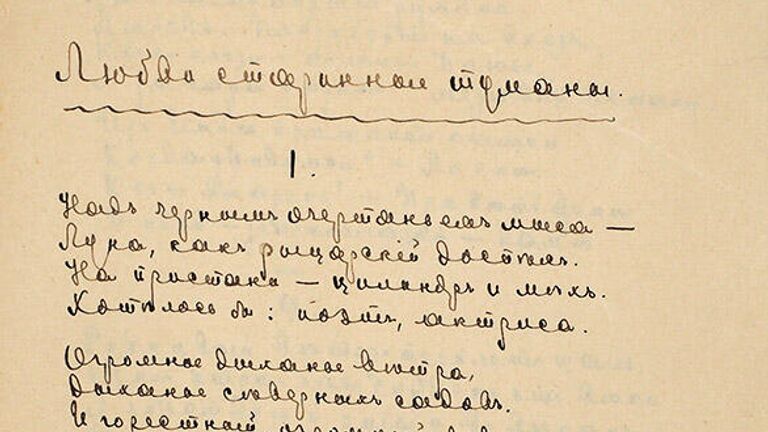 Любви старинные туманы.
1.
Надъ чернымъ очертаньемъ мыса —
Луна, какъ рыцарскій доспѣхъ.
На пристани — цилиндръ и мѣхъ.
Хотѣлось бы: поэтъ, актриса.
Огромное дыханье вѣтра,
Дыханье сѣверныхъ садовъ.
И горестный, огромный